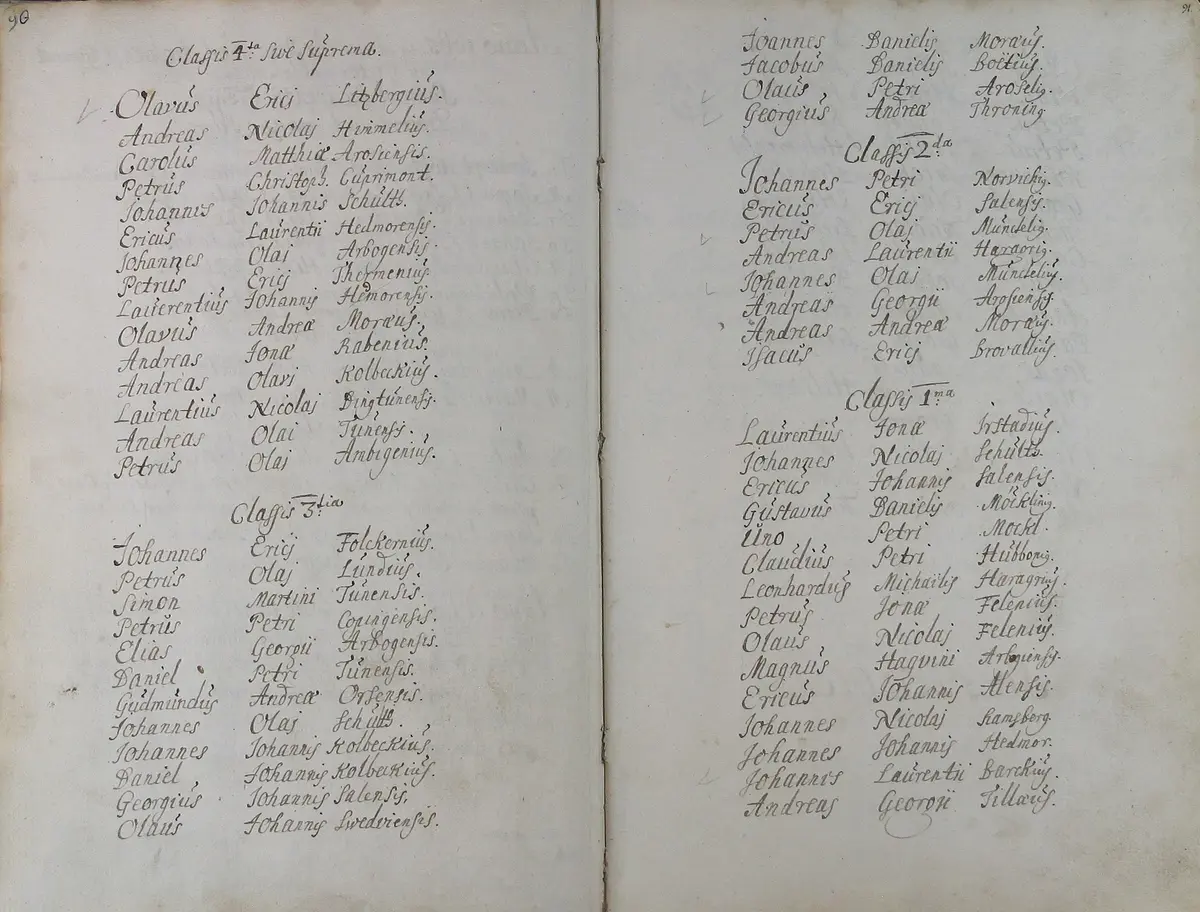 90
Classis 4.ta Sive Suprema.
Olavus Ericj Litzbergius.
Andreas Nicolaj Himmelius.
Carolus Matthiæ Arosiensis.
Petrus Christoph. Cuprimont.
Johannis Johannis Schults.
Ericus Laurentii Hedmorensis.
Johannes Olai Arbogensis.
Petrus Ericj Thermenius.
Laurerentius Johannis Hedmorensis.
Olavus Andreæ Moræus.
Andreas Jonæ Rabenius.
Andreas Olavi Kolbeckius.
Laurentius Nicolaj Dingtunensis.
Andreas Olai Tunensis.
Petrus Olaj Ambigenius.
Classis 3.tia
Johannes Ericj Folckernius.
Petrus Olaj Lundius.
Simon Martini Tunensis.
Petrus Petri Copingensis.
Elias Georgii Arbogensis.
Daniel Petri Tunensis.
Gudmundus Andreæ Orsensis.
Johannes Olaj Schults.
Johannes Johannis Kolbeckius.
Daniel Johannis Kolbeckius.
Georgius Johannis Salensis.
Olaus Johannis Swedviensis.
91
Joannes Danielis Moræus.
Jacobus Danielis Boëtius.
Olaus Petri Aroselig.
Georgius Andreæ Throning
Classis 2.da
Johannes Petri Norvichig.
Ericus Ericj Salensis.
Petrus Olaj Munctelig.
Andreas Laurentii
Johannes Olai Munctelius.
Andreas Georgii Arosienss.
Andreas Andreæ Moræus.
Isacus Ericj Brovallius.
Classis 1.ma
Laurentius Jonæ Irstadius.
Johannes Nicolaj Schults.
Ericus Johannis Salensis.
Gustavus Danielis Möckling.
Uno Petri Mockl.
Claudius Petri Hubbonig.
Leonhardus Michailis Haragrius.
Petrus Jonæ Felenius.
Olaus Nicolaj Felenius.
Magnus Haqvini
Ericus Johannis Alensis.
Johannes Nicolaj Ramsberg.
Johannes Johannis Hedmor.
Johannis Laurentii Barchius.
Andreas Georgii Tillæus.